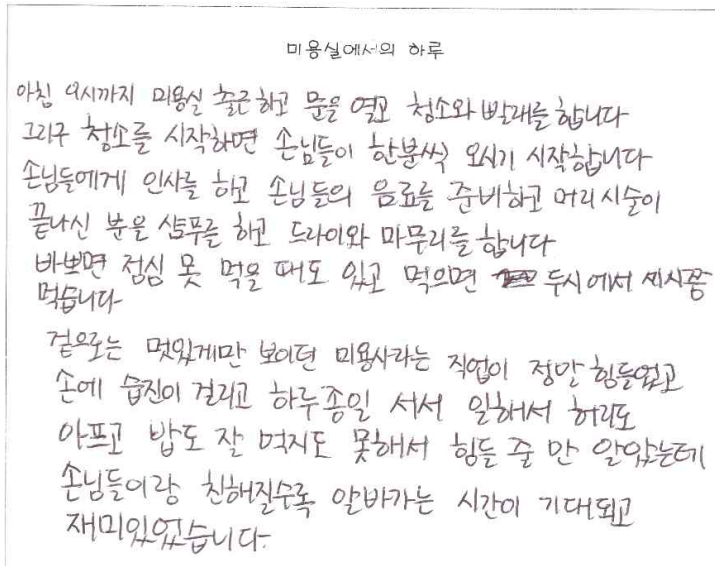 미용실에서의 하루
아침 9시까지 미용실 출근하고 문을 열고 청소와 빨래를 합니다
그리구 청소를 시작하면 손님들이 한분씩 오시기 시작합니다
손님들에게 인사를 하고 손님들의 음료를 준비하고 머리시술이
끝나신 분을 샴푸를 하고 드라이와 마무리를 합니다
바쁘면 점심 못 먹을 때도 있고 먹으면 두시에서 세시쯤
먹습니다
겉으로는 멋있게만 보이던 미용사라는 직업이 정말 힘들었고
손에 습진이 걸리고 하루종일 서서 일해서 허리도
아프고 밥도 잘 먹지도 못해서 힘들 줄 만 알았는데
손님들이랑 친해질수록 알바가는 시간이 기대되고
재미있었습니다.